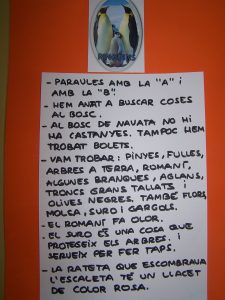 - PARAULES AMB LA "A" i
AMB LA "B".
- HEM ANAT A BUSCAR COSES
AL BOSC.
- AL BOSC DE NAVATA NO HI
HA CASTANYES. TAMPOC HEM
TROBAT BOLETS.
- VAM TROBAR: PINYES, FULLES,
ARBRES A TERRA, ROMANÍ,
ALGUNES BRANQUES, AGLANS,
TRONCS GRANS TALLATS i
OLIVES NEGRES. TAMBÉ FLORS,
MOLSA, SURO i GARGOLS.
- EL ROMANÍ FA OLOR.
- EL SURO ÉS UNA COSA QUE
PROTEGEIX ELS ARBRES, i
SERVEIX PER FER TAPS.
- LA RATETA QUE ESCOMBRAVA
L'ESCALETA TÉ UN LLACET
DE COLOR ROSA.